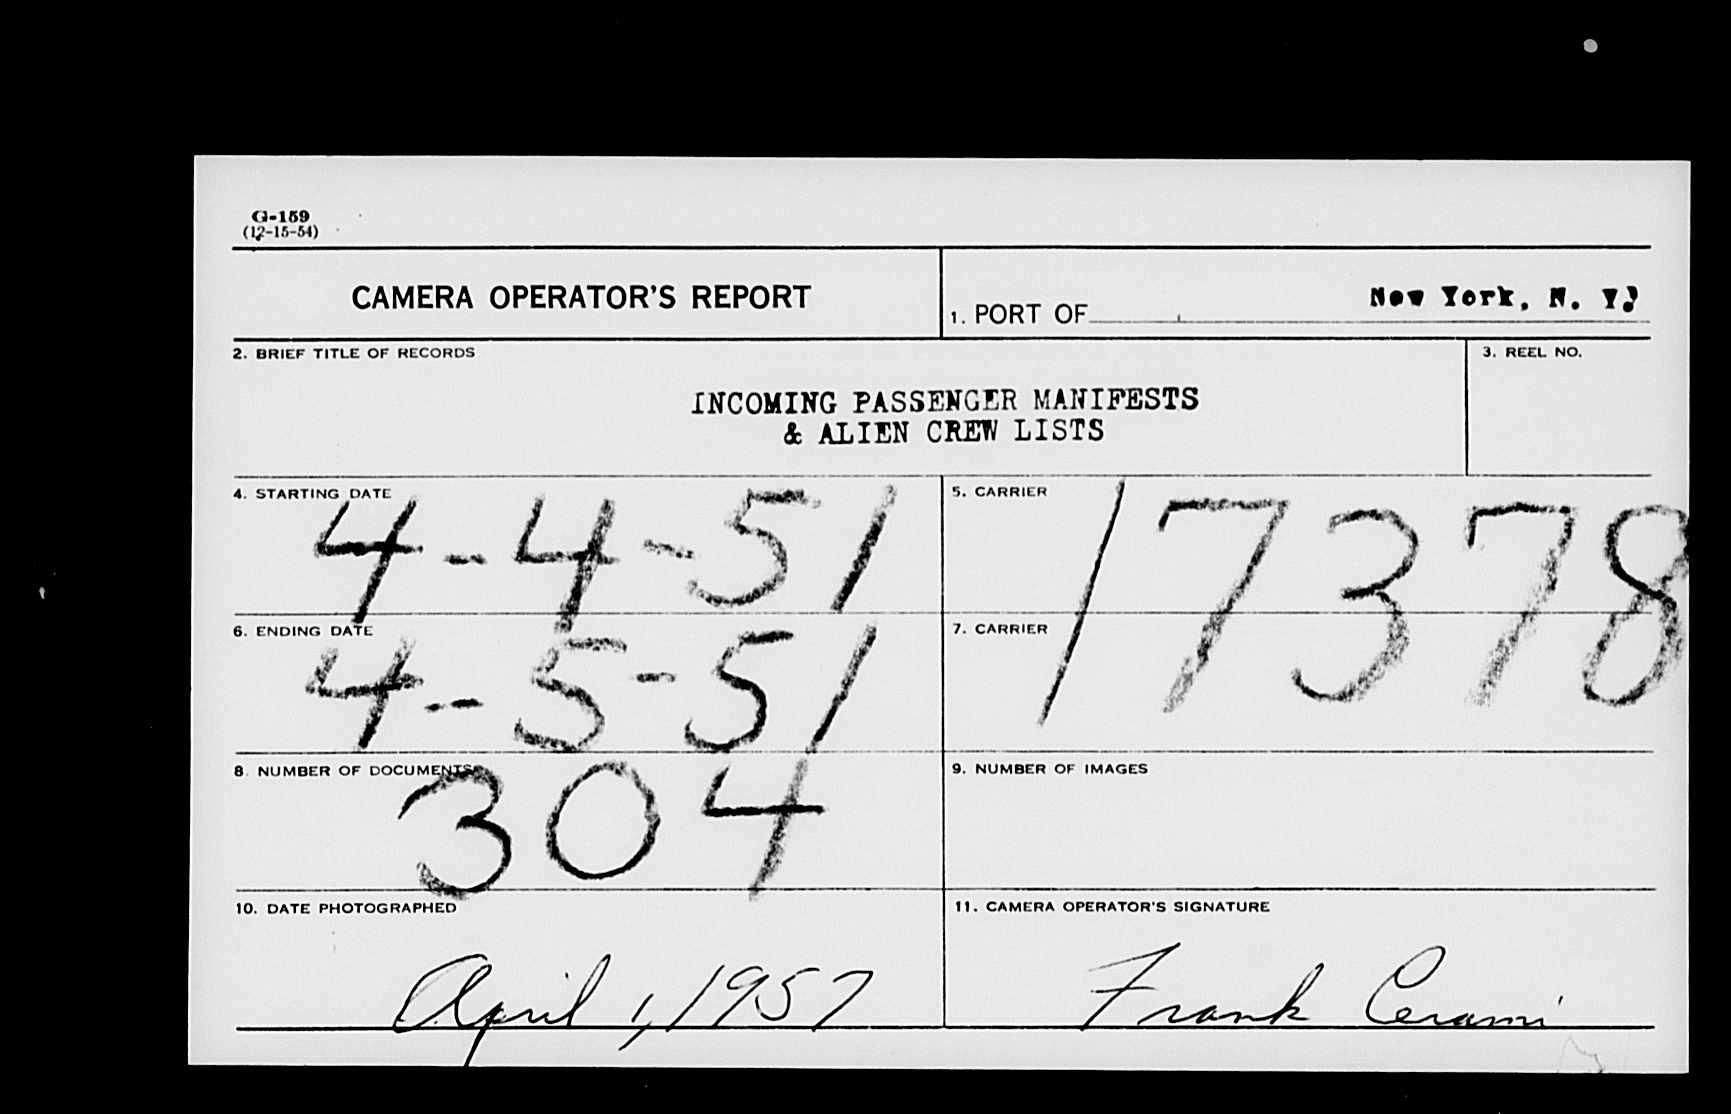 G-159
(12-15-54)
CAMERA OPERATOR'S REPORT
1. PORT OF New York, N. Y.
2. BRIEF TITLE OF RECORDS
INCOMING PASSENGER MANIFESTS
& ALIEN CREW LISTS
3. REEL NO.
4. STARTING DATE
4-4-51
5. CARRIER
17378
6. ENDING DATE
4-5-51
7. CARRIER
8. NUMBER OF DOCUMENTS
304
9. NUMBER OF IMAGES
10. DATE PHOTOGRAPHED
April 1, 1957
11. CAMERA OPERATOR'S SIGNATURE
Frank Cerami